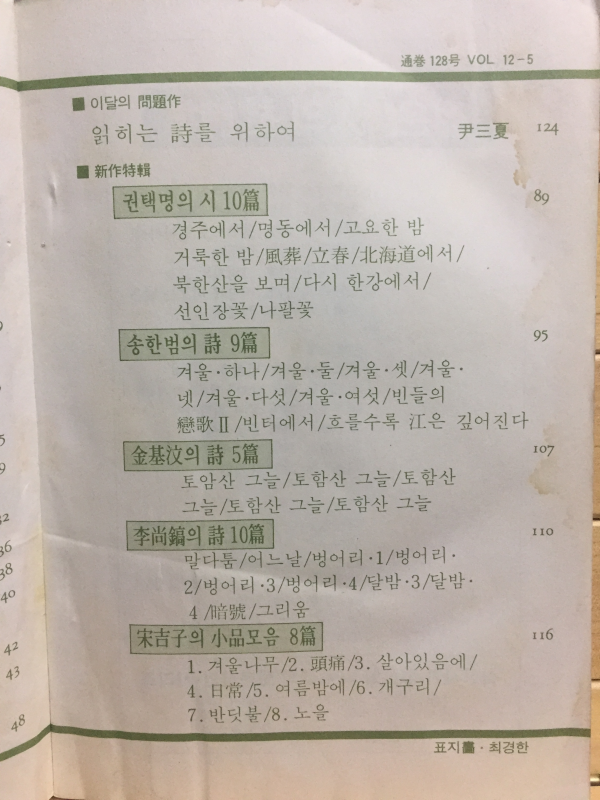 通巻 128号 VOL. 12-5
■ 이달의 問題作
읽히는 詩를 위하여 尹三夏 124
■ 新作特輯
권택명의 시 10篇 89
경주에서/명동에서/고요한 밤
거룩한 밤/風葬/立春/北海道에서/
북한산을 보며/다시 한강에서/
선인장꽃/나팔꽃
송한범의 詩 9篇 95
겨울·하나/겨울·둘/겨울·셋/겨울·
넷/겨울·다섯/겨울·여섯/빈들의
戀歌Ⅱ/빈터에서/흐를수록 江은 깊어진다
金基汶의 詩 5篇 107
토암산 그늘/토함산 그늘/토함산
그늘/토함산 그늘/토함산 그늘
李尚鎬의 詩 10篇 110
말다툼/어느날/벙어리·1/벙어리·
2/벙어리·3/벙어리·4/달밤·3/달밤·
4/暗號/그리움
宋吉子의 小品모음 8篇 116
1. 겨울나무/2. 頭痛/3. 살아있음에/
4. 日常/5. 여름밤에/6. 개구리/
7. 반딧불/8. 노을
표지畵·최경한
42
36
38
40
42
43
48